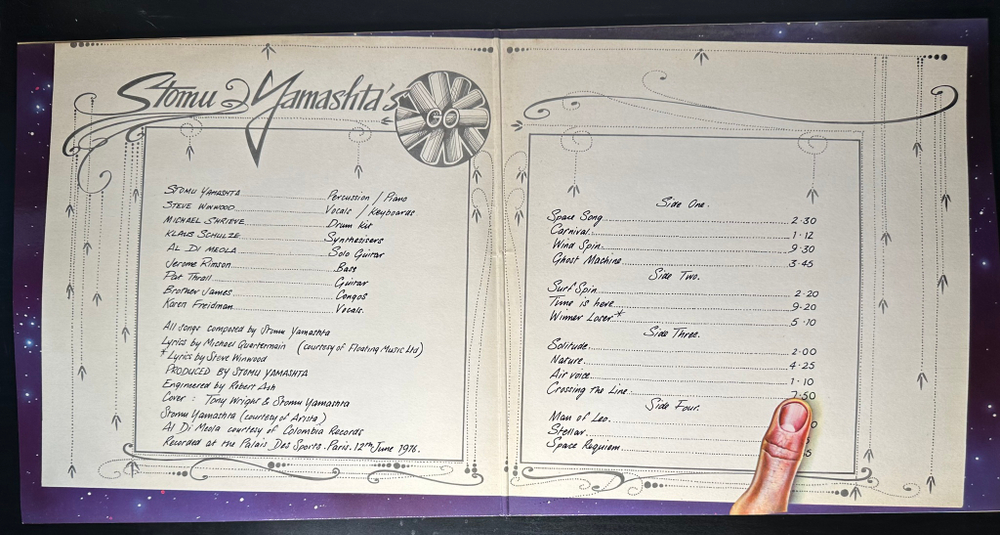 Stomu Yamashta's
GO
STOMU YAMASHTA Percussion / Piano
STEVE WINWOOD Vocals / Keyboards
MICHAEL SHRIEVE Drum Kit
KLAUS SCHULZE Synthesisers
AL DI MEOLA Solo Guitar
Jerome Rimson Bass
Pat Thrall Guitar
Brother James Congos
Karen Freidman Vocals.
All songs composed by Stomu Yamashta
Lyrics by Michael Quartermain (courtesy of Floating Music Ltd)
* Lyrics by Steve Winwood
PRODUCED BY STOMU YAMASHTA
Engineered by Robert Ash
Cover : Tony Wright & Stomu Yamashta
Stomu Yamashta (courtesy of Arista)
Al Di Meola courtesy of Colombia Records
Recorded at the Palais Des Sports. Paris. 12th June 1976.
Side One.
Space Song 2·30
Carnival 1·12
Wind Spin 9·30
Ghost Machine 3·45
Side Two.
Surf Spin 2·20
Time is here 9·20
Winner Loser * 5·10
Side Three.
Solitude 2·00
Nature 4·25
Air voice 1·10
Crossing the Line 7·50
Side Four.
Man of Leo 0
Stellar
Space Requiem 5